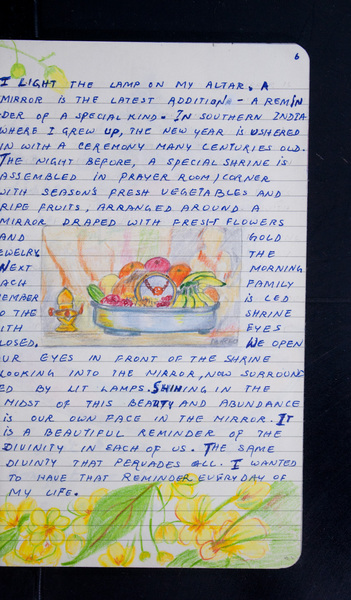 6
I LIGHT THE LAMP ON MY ALTAR. A
MIRROR IS THE LATEST ADDITION - A REMIN
DER OF A SPECIAL KIND. IN SOUTHERN INDIA
WHERE I GREW UP, THE NEW YEAR IS USHERED
IN WITH A CEREMONY MANY CENTURIES OLD.
THE NIGHT BEFORE, A SPECIAL SHRINE IS
ASSEMBLED IN PRAYER ROOM/CORNER
WITH SEASON'S FRESH VEGETABLES AND
RIPE FRUITS, ARRANGED AROUND A
MIRROR DRAPED WITH FRESH FLOWERS
AND GOLD
EWELRY. THE
NEXT MORNING
EACH FAMILY
EMBER IS LED
O THE SHRINE
ITH EYES
LOSED. WE OPEN
UR EYES IN FRONT OF THE SHRINE
LOOKING INTO THE MIRROR, NOW SURROUND
ED BY LIT LAMPS. SHINING IN THE
MIDST OF THIS BEAUTY AND ABUNDANCE
IS OUR OWN FACE IN THE MIRROR. IT
IS A BEAUTIFUL REMINDER OF THE
DIVINITY IN EACH OF US. THE SAME
DIVINITY THAT PERVADES ALL. I WANTED
TO HAVE THAT REMINDER EVERYDAY OF
MY LIFE.